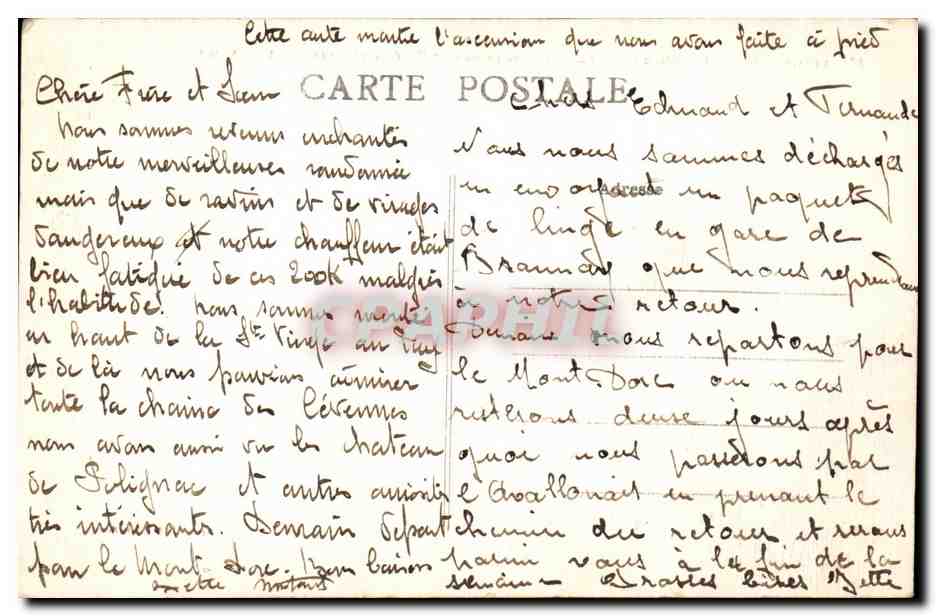 Cette carte montre l'ascension que nous avons faite à pied
CARTE POSTALE
Chère Frère et Sœur
Nous sommes revenus enchantés
de notre merveilleuse randonnée
mais que de ravins et de virages
dangereux et notre chauffeur était
bien fatigué de ces 200K malgrés
l'habitude. nous sommes montés
en haut de la Ste Vierge au Puy
et de là nous pouvions admirer
toute la chaine des Cévennes
nous avons aussi vu le chateau
de Polignac et autres curiosités
très intéressantes. Demain départ
pour le Mont-Dore. Bons baisers
Chers Edmond et Fernande
Nous nous sommes déchargés
Adresse
en envoyant un paquet
de linge en gare de
que nous reprendrons
à notre retour.
Demain nous repartons pour
le Mont-Dore ou nous
resterons deux jours après
quoi nous passerons par
l'Avallonais en prenant le
chemin du retour et serons
parmi vous à la fin de la
semaine Grosses bises
CPARHII